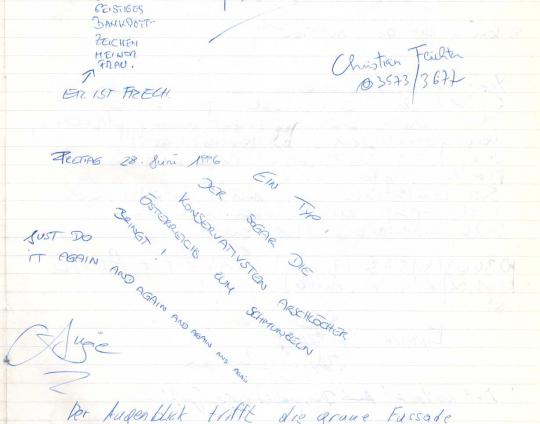 GEISTIGES
BANKROTT-
ZEICHEN
MEINER
FRAU.
ER IST FRECH.
Christian
03573/3677
FREITAG 28. Juni 1996
EIN TYP,
DER SOGAR DIE
KONSERVATIVSTEN ARSCHLÖCHER
ÖSTERREICHS ZUM SCHMUNZELN
BRINGT!
JUST DO
IT AGAIN AND AGAIN AND AGAIN AND AGAIN
Der Augenblick trifft die graue Fassade